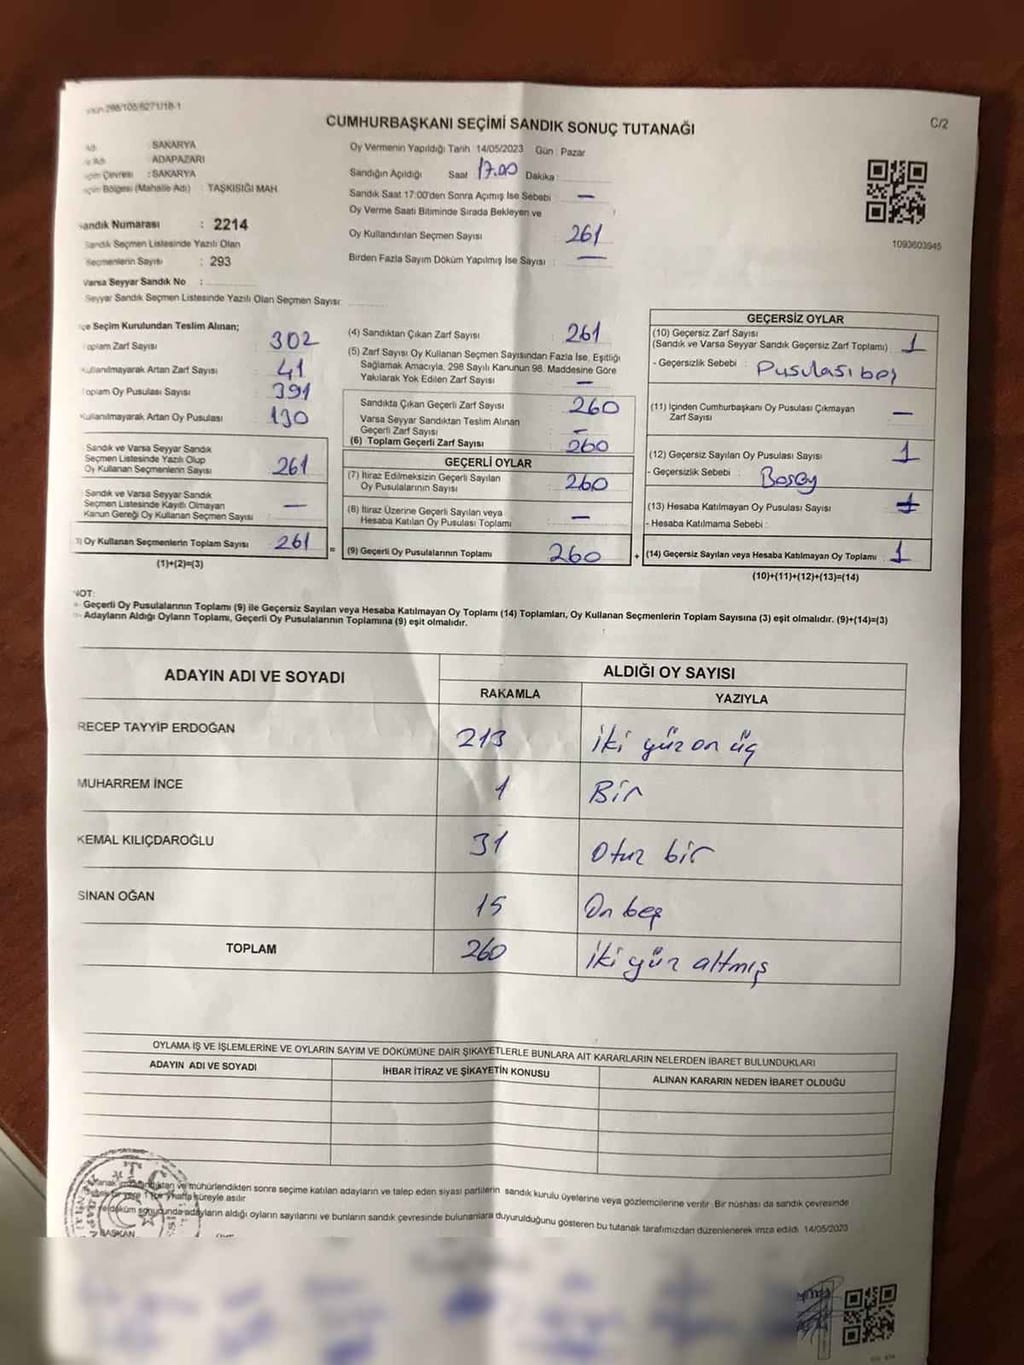 298/105/6271/18-1
CUMHURBAŞKANI SEÇİMİ SANDIK SONUÇ TUTANAĞI
C/2
SAKARYA
ADAPAZARI
: SAKARYA
Bölgesi (Mahalle Adı) TAŞKISIĞI MAH.
Sandık Numarası : 2214
Sandık Seçmen Listesinde Yazılı Olan
Seçmenlerin Sayısı : 293
Varsa Seyyar Sandık No :
Seyyar Sandık Seçmen Listesinde Yazılı Olan Seçmen Sayısı:
Oy Vermenin Yapıldığı Tarih 14/05/2023 Gün : Pazar
Sandığın Açıldığı Saat 17.00 Dakika :
Sandık Saat 17:00'den Sonra Açımış İse Sebebi —
Oy Verme Saati Bitiminde Sırada Bekleyen ve
Oy Kullandırılan Seçmen Sayısı 261
Birden Fazla Sayım Döküm Yapılmış İse Sayısı —
1093603945
Seçim Kurulundan Teslim Alınan;
Toplam Zarf Sayısı 302
Kullanılmayarak Artan Zarf Sayısı 41
Toplam Oy Pusulası Sayısı 391
Kullanılmayarak Artan Oy Pusulası 130
Sandık ve Varsa Seyyar Sandık
Seçmen Listesinde Yazılı Olup
Oy Kullanan Seçmenlerin Sayısı 261
Sandık ve Varsa Seyyar Sandık
Seçmen Listesinde Kayıtlı Olmayan
Kanun Gereği Oy Kullanan Seçmen Sayısı —
Oy Kullanan Seçmenlerin Toplam Sayısı 261
(1)+(2)=(3)
=
(4) Sandıktan Çıkan Zarf Sayısı 261
(5) Zarf Sayısı Oy Kullanan Seçmen Sayısından Fazla İse, Eşitliği
Sağlamak Amacıyla, 298 Sayılı Kanunun 98. Maddesine Göre
Yakılarak Yok Edilen Zarf Sayısı —
Sandıkta Çıkan Geçerli Zarf Sayısı 260
Varsa Seyyar Sandıktan Teslim Alınan
Geçerli Zarf Sayısı —
(6) Toplam Geçerli Zarf Sayısı 260
GEÇERLİ OYLAR
(7) İtiraz Edilmeksizin Geçerli Sayılan
Oy Pusulalarının Sayısı 260
(8) İtiraz Üzerine Geçerli Sayılan veya
Hesaba Katılan Oy Pusulası Toplamı —
(9) Geçerli Oy Pusulalarının Toplamı 260
+
GEÇERSİZ OYLAR
(10) Geçersiz Zarf Sayısı
(Sandık ve Varsa Seyyar Sandık Geçersiz Zarf Toplamı) 1
- Geçersizlik Sebebi : Pusulası boş
(11) İçinden Cumhurbaşkanı Oy Pusulası Çıkmayan
Zarf Sayısı —
(12) Geçersiz Sayılan Oy Pusulası Sayısı 1
- Geçersizlik Sebebi :
(13) Hesaba Katılmayan Oy Pusulası Sayısı
- Hesaba Katılmama Sebebi :
(14) Geçersiz Sayılan veya Hesaba Katılmayan Oy Toplamı 1
(10)+(11)+(12)+(13)=(14)
NOT:
Geçerli Oy Pusulalarının Toplamı (9) ile Geçersiz Sayılan veya Hesaba Katılmayan Oy Toplam (14) Toplamları, Oy Kullanan Seçmenlerin Toplam Sayısına (3) eşit olmalıdır. (9)+(14)=(3)
Adayların Aldığı Oyların Toplamı, Geçerli Oy Pusulalarının Toplamına (9) eşit olmalıdır.
ADAYIN ADI VE SOYADI
ALDIĞI OY SAYISI
RAKAMLA YAZIYLA
RECEP TAYYİP ERDOĞAN 213 iki yüz on üç
MUHARREM İNCE 1 Bir
KEMAL KILIÇDAROĞLU 31 Otuz bir
SİNAN OĞAN 15 On beş
TOPLAM 260 İki yüz altmış
OYLAMA İŞ VE İŞLEMLERİNE VE OYLARIN SAYIM VE DÖKÜMÜNE DAİR ŞİKAYETLERLE BUNLARA AİT KARARLARIN NELERDEN İBARET BULUNDUKLARI
ADAYIN ADI VE SOYADI İHBAR İTİRAZ VE ŞİKAYETİN KONUSU ALINAN KARARIN NEDEN İBARET OLDUĞU
ve mühürlendikten sonra seçime katılan adayların ve talep eden siyasi partilerin sandık kurulu üyelerine veya gözlemcilerine verilir. Bir nüshası da sandık çevresinde
1 hafta süreyle asılır
döküm sonucunda adayların aldığı oyların sayılarını ve bunların sandık çevresinde bulunanlara duyurulduğunu gösteren bu tutanak tarafımızdan düzenlenerek imza edildi. 14/05/2023
T.C.
BAŞKAN